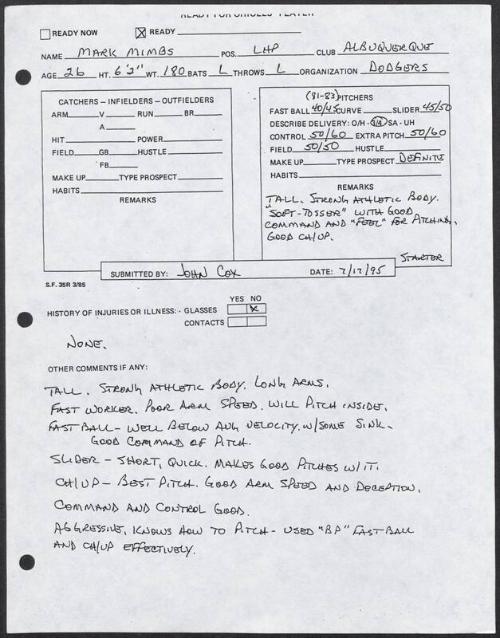 READY FOR ORIOLES PLAYER
READY NOW X READY
NAME MARK MIMBS POS. LHP CLUB ALBUQUERQUE
AGE 26 HT. 6'2" WT. 180 BATS L THROWS L ORGANIZATION DODGERS
CATCHERS - INFIELDERS - OUTFIELDERS
ARM V RUN BR
A
HIT POWER
FIELD GB HUSTLE
FB
MAKE UP TYPE PROSPECT
HABITS
REMARKS
(81-83) PITCHERS
FAST BALL 40/45 CURVE SLIDER 45/50
DESCRIBE DELIVERY: O/H - 3/4 - SA - UH
CONTROL 50/60 EXTRA PITCH 50/60
FIELD 50/50 HUSTLE
MAKE UP TYPE PROSPECT DEFINITE
HABITS
REMARKS
TALL. STRONG ATHLETIC BODY.
"SOFT-TOSSER" WITH GOOD
COMMAND AND "FEEL" FOR PITCHING.
GOOD CH/UP.
STARTER
SUBMITTED BY: JOHN COX DATE: 7/17/95
S.F. 35R 3/85
YES NO
HISTORY OF INJURIES OR ILLNESS: - GLASSES X
CONTACTS
NONE.
OTHER COMMENTS IF ANY:
TALL. STRONG ATHLETIC BODY. LONG ARMS.
FAST WORKER. POOR ARM SPEED. WILL PITCH INSIDE.
FAST BALL - WELL BELOW AVG VELOCITY. W/SOME SINK.
GOOD COMMAND OF PITCH.
SLIDER - SHORT, QUICK. MAKES GOOD PITCHES W/IT.
CH/UP - BEST PITCH. GOOD ARM SPEED AND DECEPTION.
COMMAND AND CONTROL GOOD.
AGGRESSIVE, KNOWS HOW TO PITCH - USED "BP" FASTBALL
AND CH/UP EFFECTIVELY.